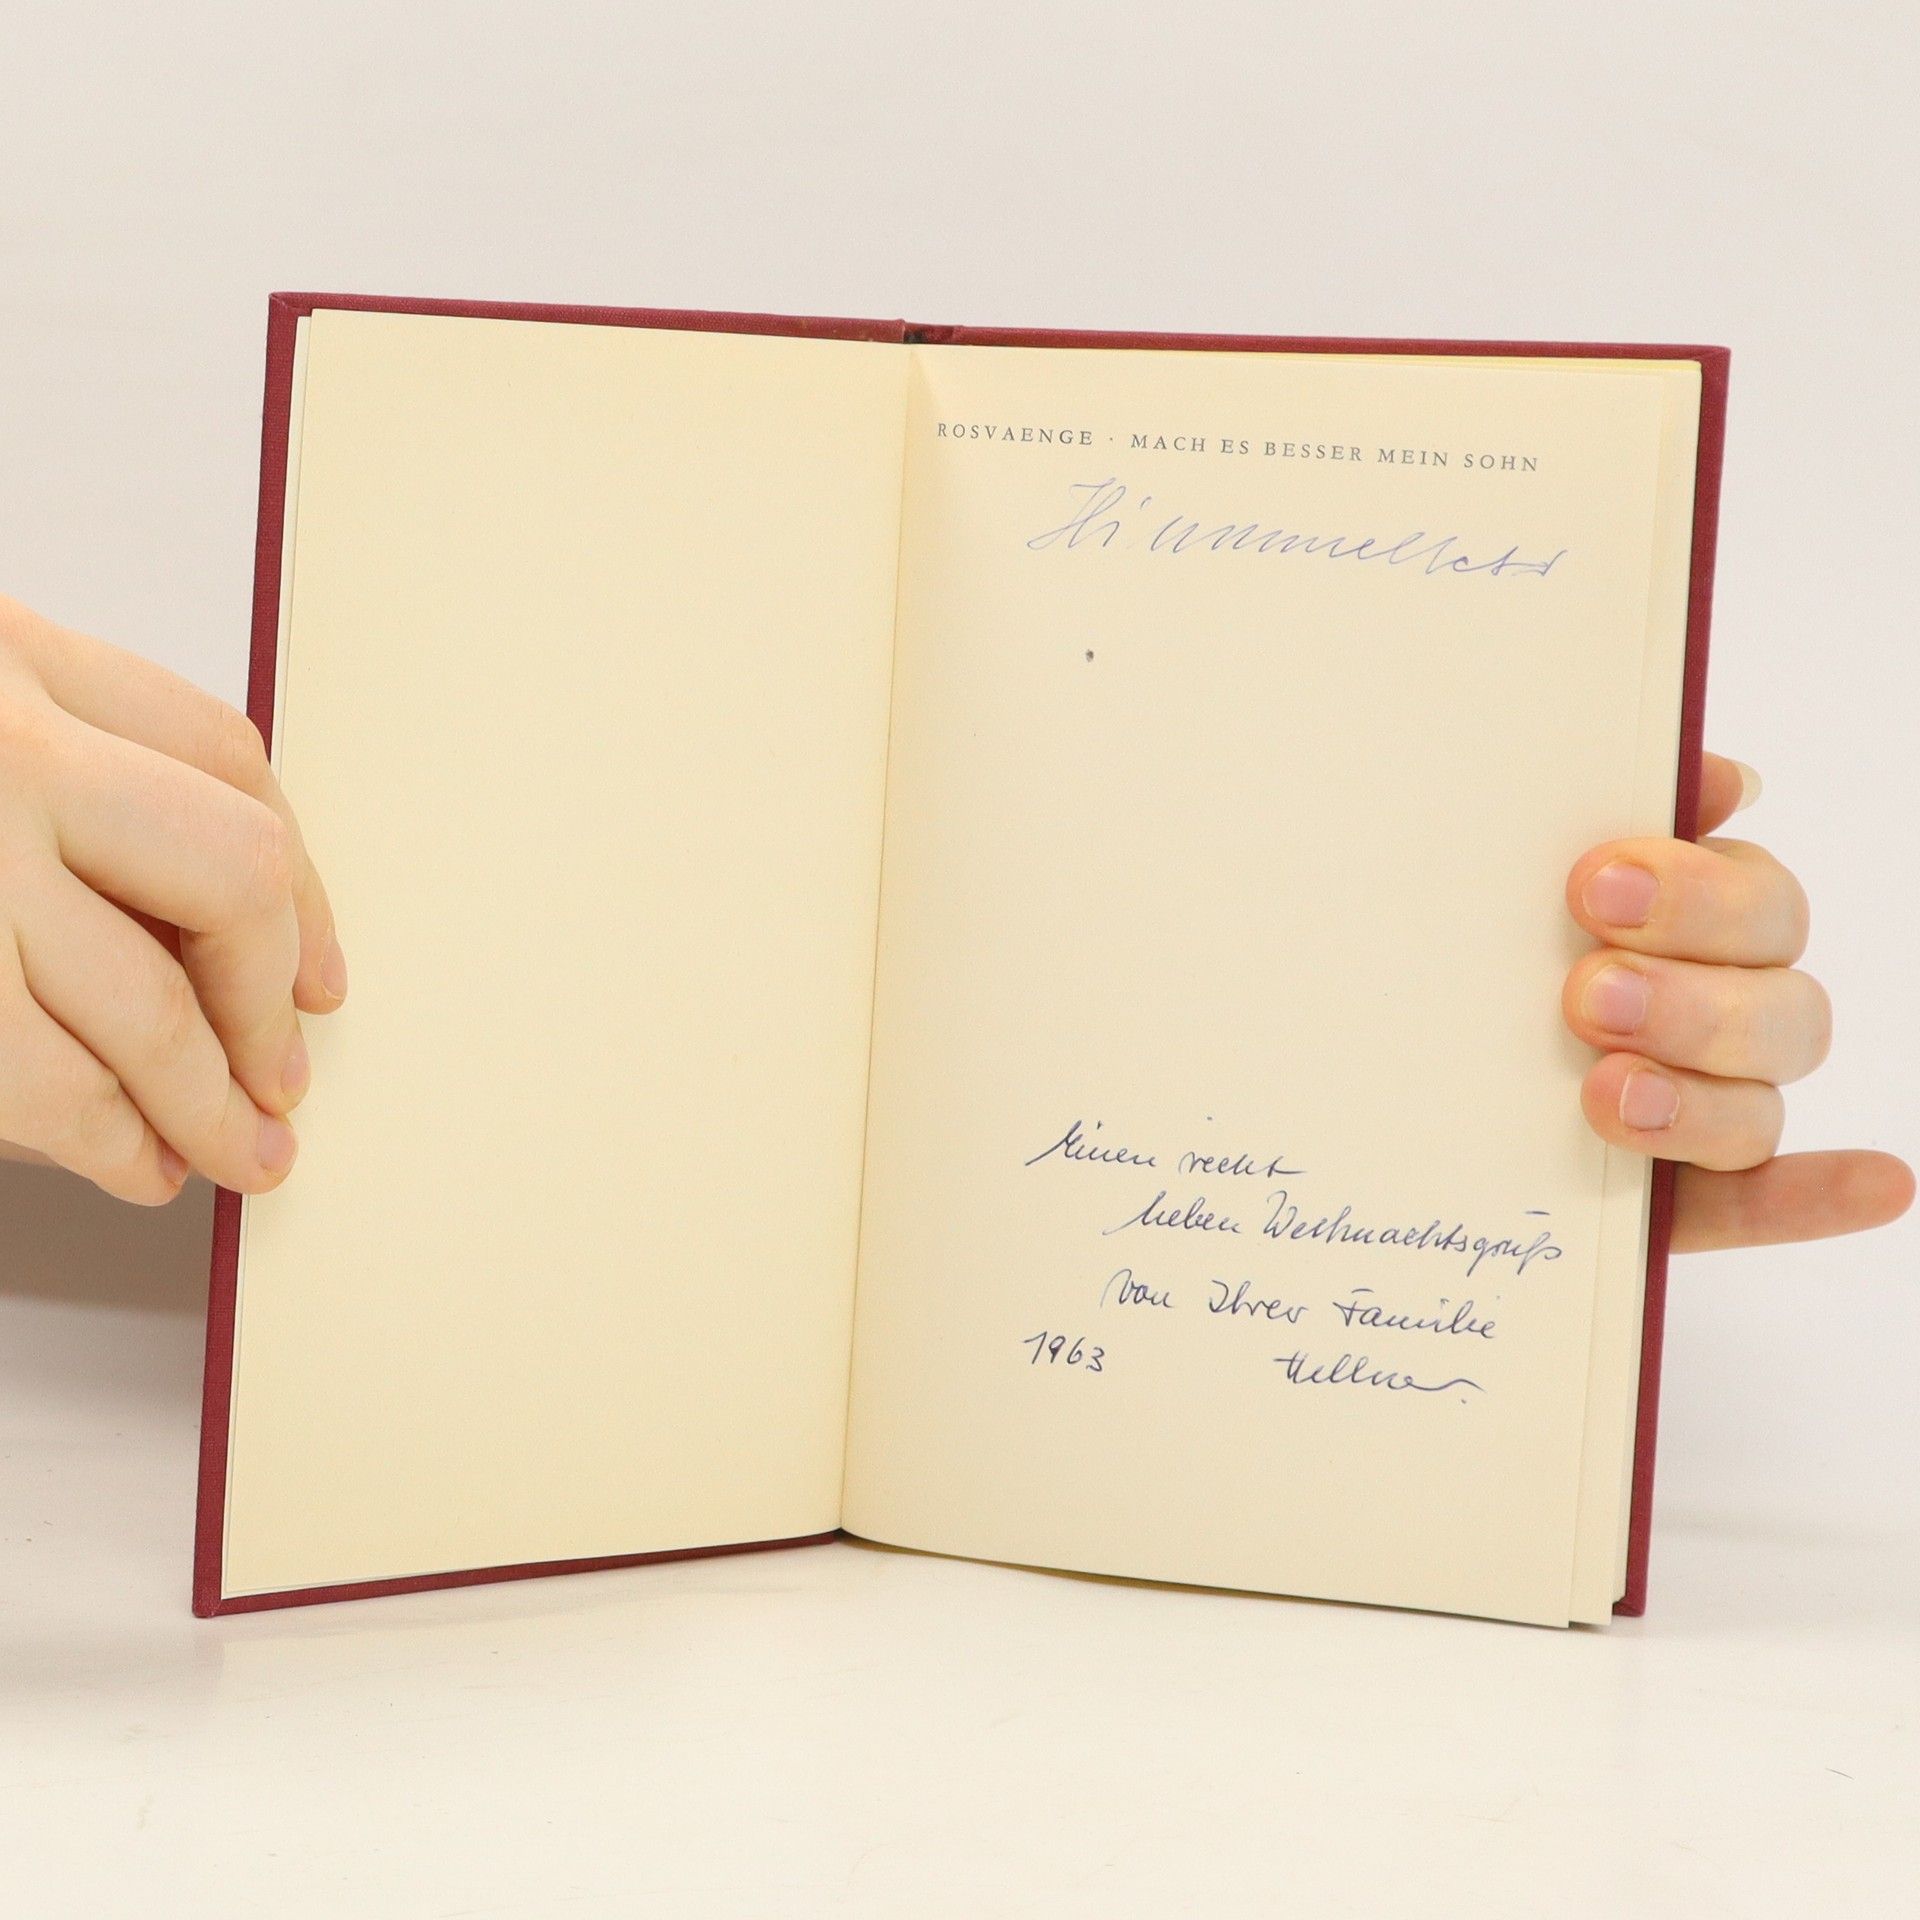 ROSVAENGE · MACH ES BESSER MEIN SOHN
Einen recht
lieben Weihnachtsgruß
von Ihrer Familie
1963 Hellner.